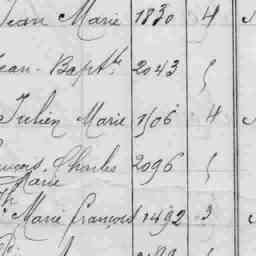 Jean Marie 1830 4
Jean-Bapt.te 2043 5
Julien Marie 1506 4
Charles 2096 5
Marie
Marie François 1492 3